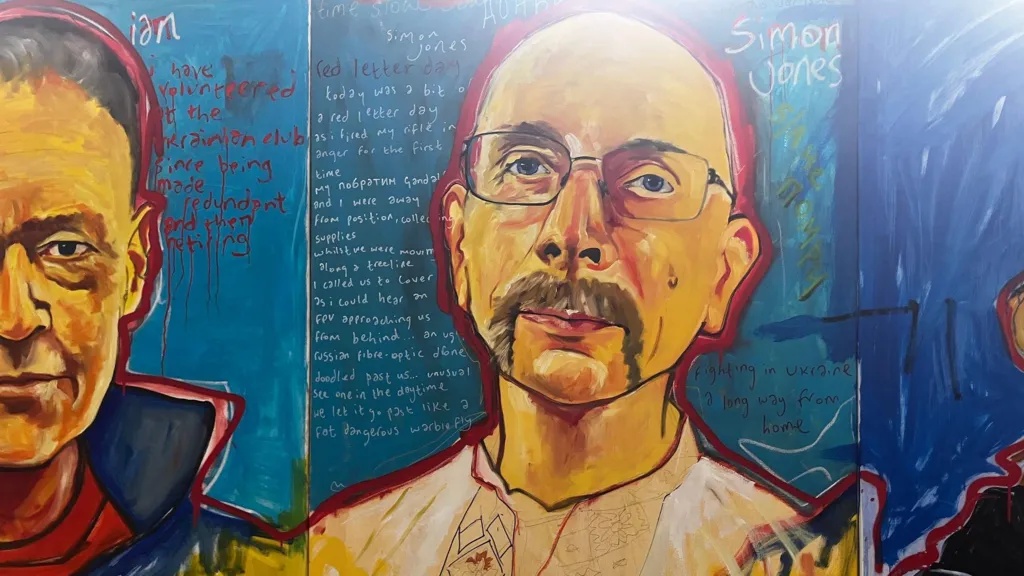 ian
i have
volunteered
at the
ukrainian club
since being
made
redundant
and then
retiring
time slows
simon
jones
red letter day
today was a bit o
a red letter day
as i fired my rifle in
anger for the first
time
my побратим Gandal
and i were away
from position, collec ing
supplies
whilst we were moun
along a treeline
i called us to cover
as i could hear an
FPV approaching us
from behind... an ug
russian fibre-optic drone
doodled past us... unusual
see one in the daytime
we let it go past like a
fat dangerous warble fly
Simon
Jones
fighting in ukraine
a long way from
home